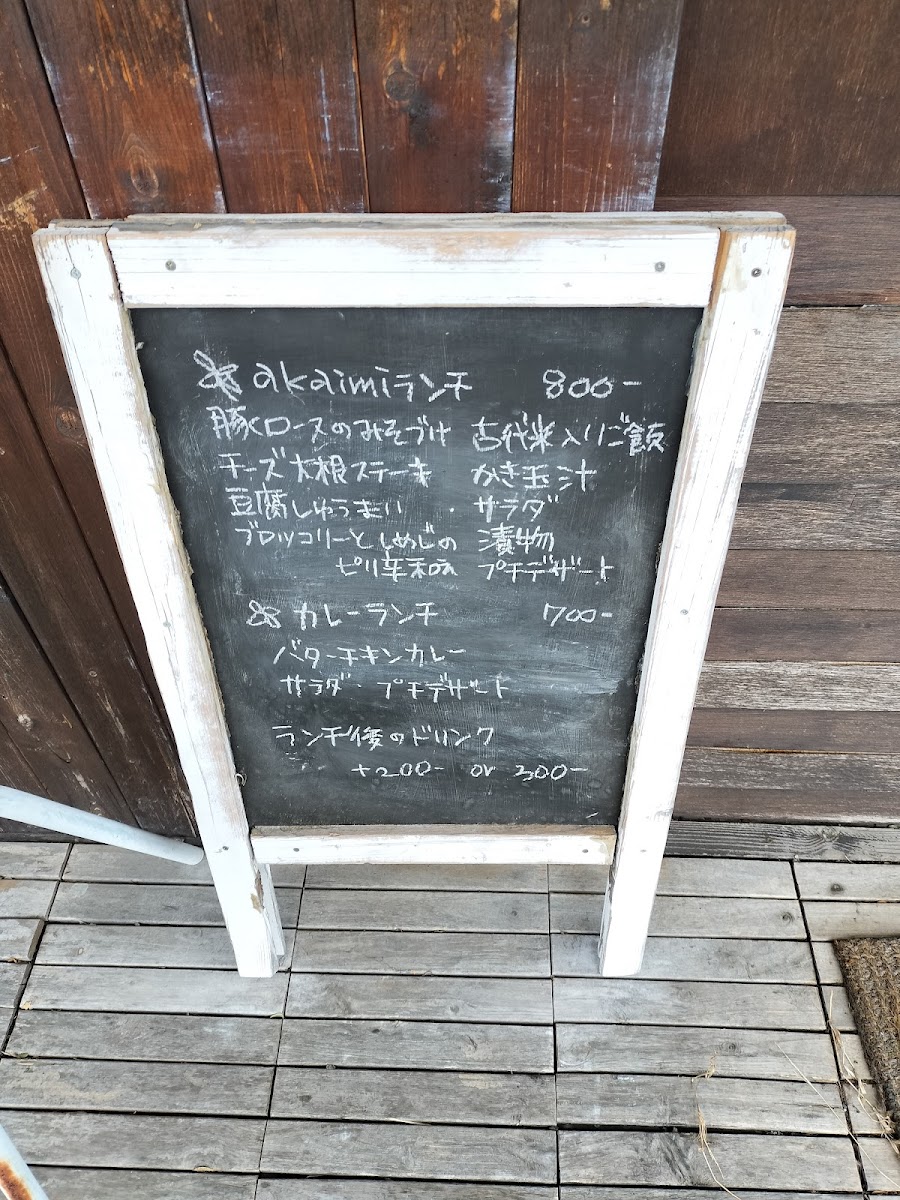 akaimiランチ 800-
豚ロースのみそづけ 古代米入りご飯
チーズ大根ステーキ かき玉汁
豆腐しゅうまい ・ サラダ
ブロッコリーとしめじの 漬物
ピリ辛和え プチデザート
カレーランチ 700-
バターチキンカレー
サラダ・プチデザート
ランチ後のドリンク
+200- or 300-